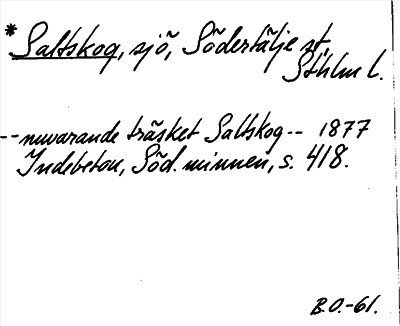 *Saltskog, sjö, Södertälje st,
Sthlm l.
-- nuvarande träsket Saltskog -- 1877
Indebetou, Söd. minnen, s. 418.
B.O.-61.